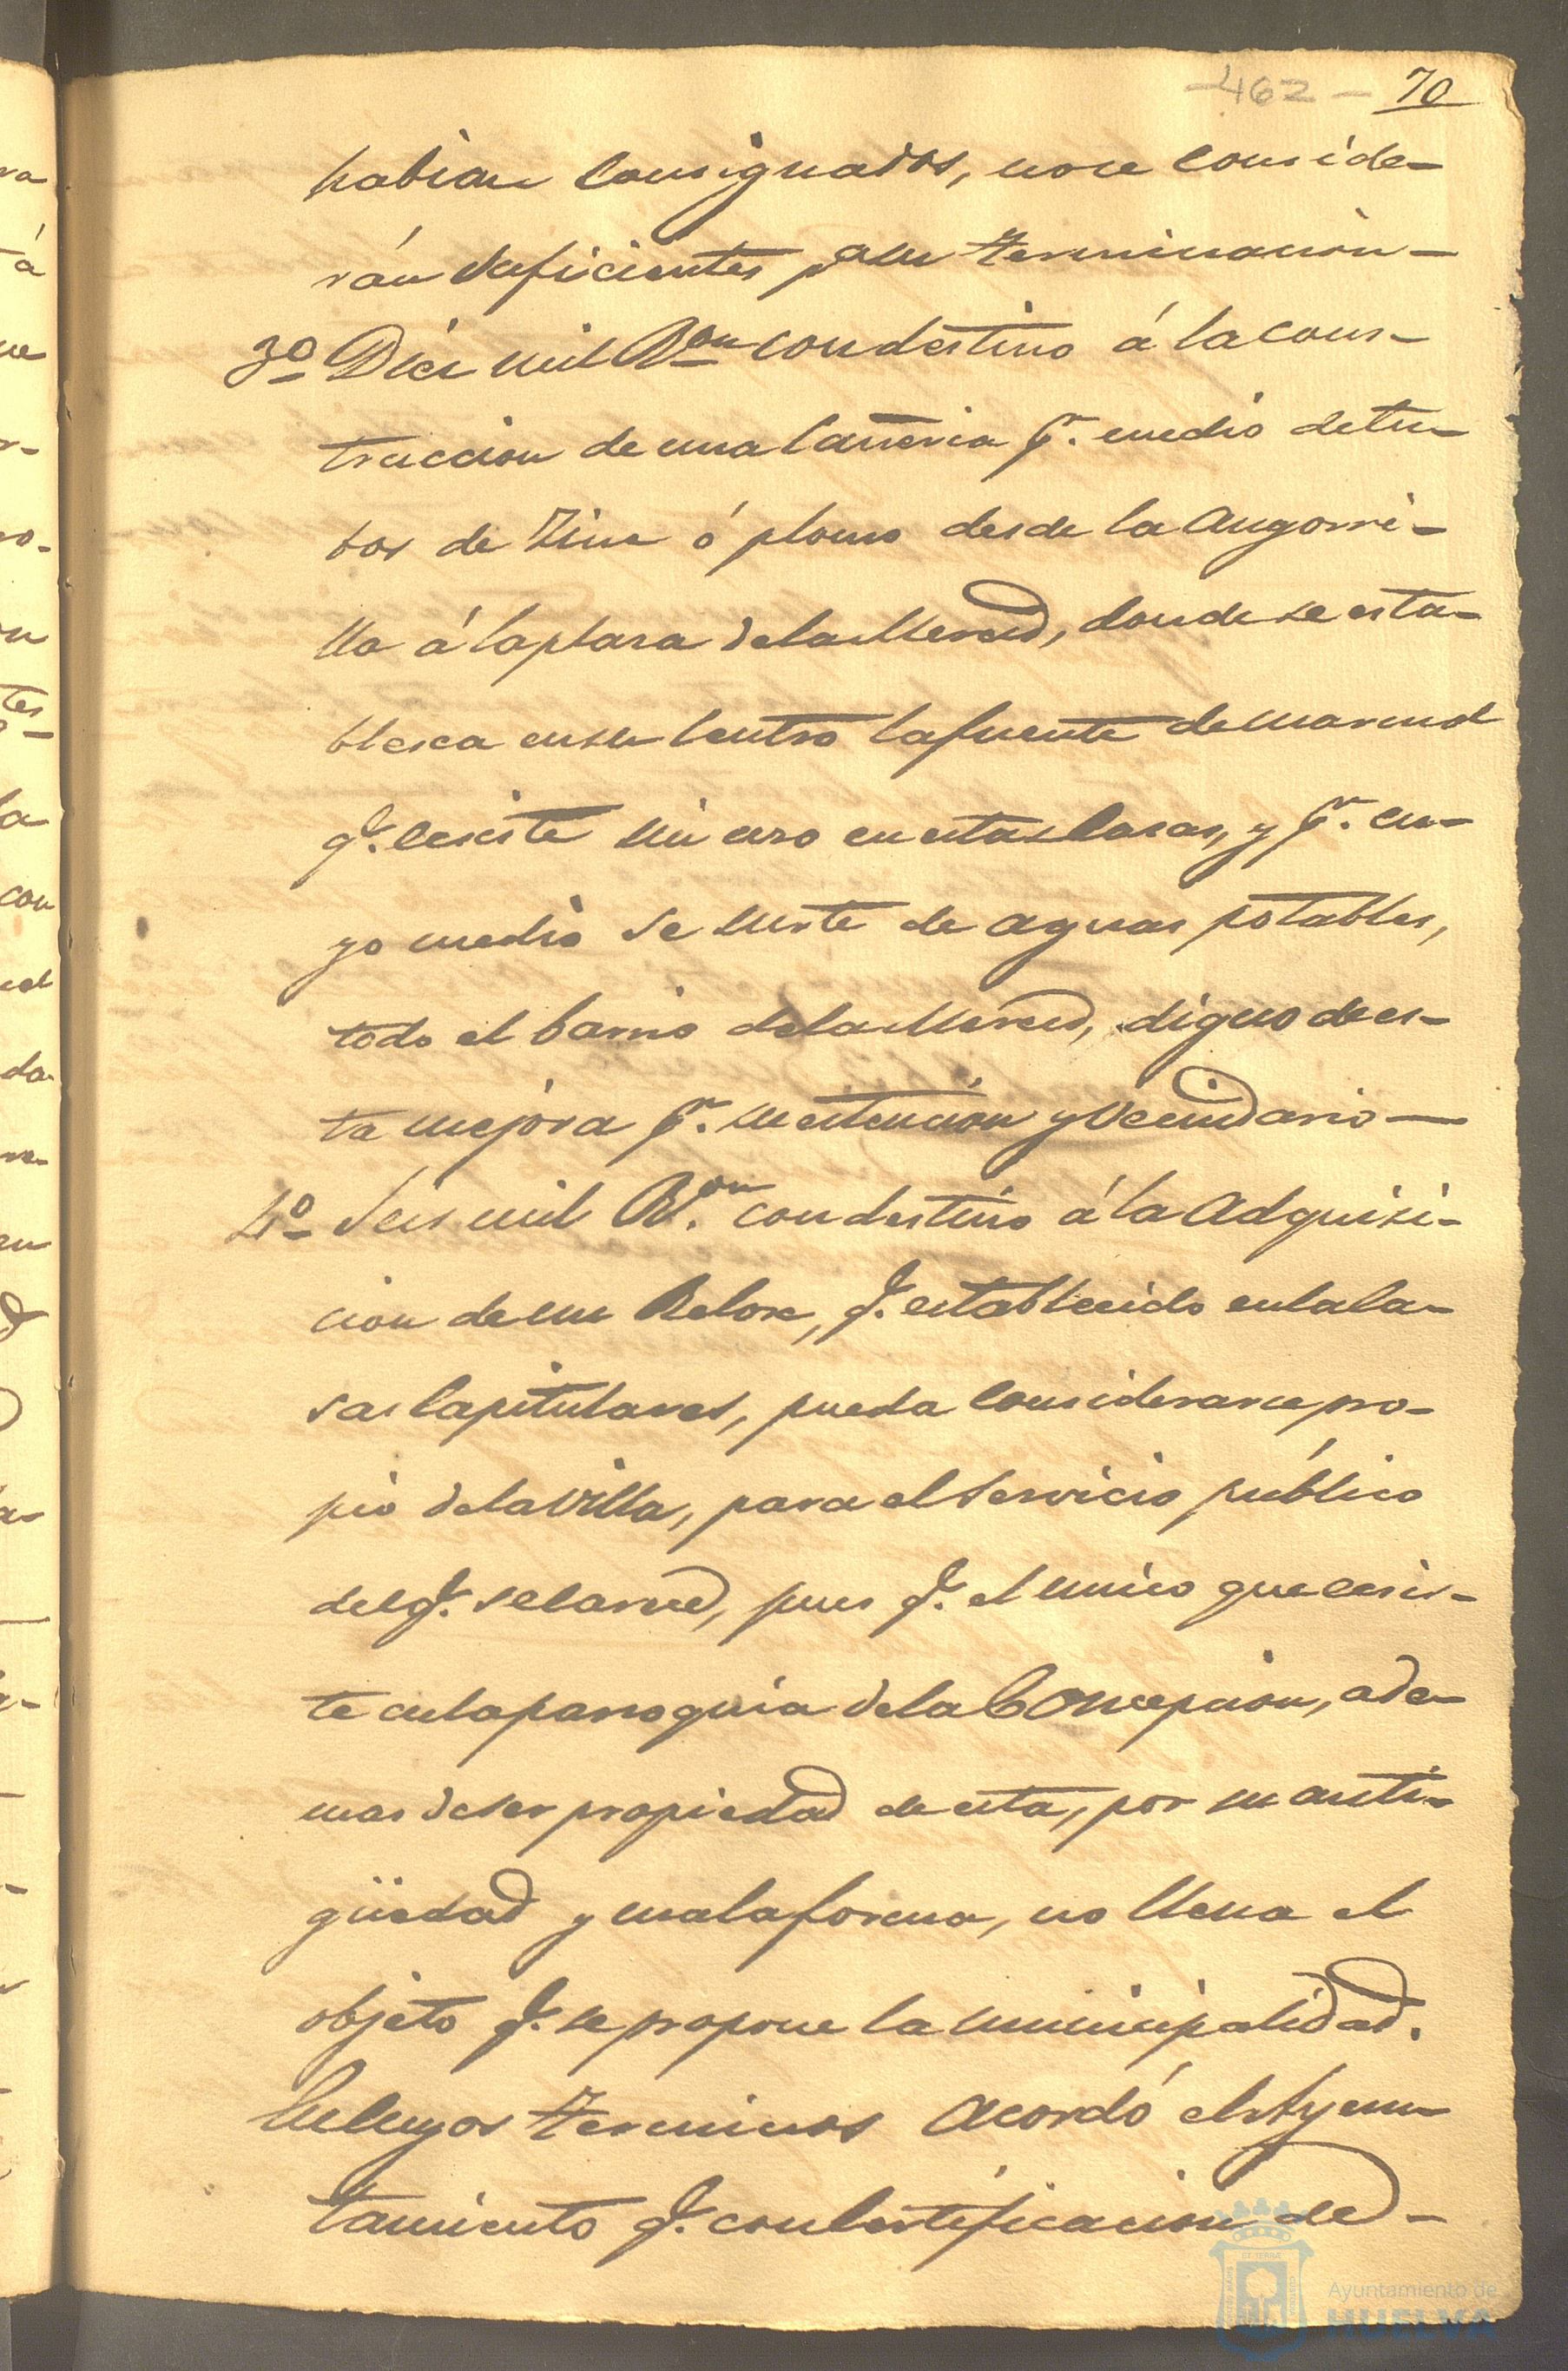 -462- 70
habian consignados, no se conside-
rán suficientes pª su terminacion-
3º Diez mil Rº.ⁿ con destino á la cons-
truccion de una Cañeria p.r medio de tu-
bos de Zinc ó plomo desde la Angorri-
lla á la plaza de la Merced, donde se esta-
blesca en su Centro la fuente de marmol
q.e ecsiste sin uso en estas Casas, y p.r cu-
yo medio se surte de aguas potables,
todo el barrio de la Merced, digno de es-
ta mejora p.r su estencion y vecindario-
4º Seis mil R.on con destino á la Adquisi-
cion de un Relox, q.e establecido en la Ca-
sas Capitulares, pueda considerarse pro-
pio de la Villa, para el servicio público
del q.e se carece, pues q.e el unico que ecsis-
te en la parroquia de la Concepcion, ade-
mas de ser propiedad de esta, por su anti-
güedad y mala forma, no llena el
objeto q.e se propone la municipalidad.
En cuyos terminos acordó el Ayun-
tamiento q.e con Certificacion de-
Ayuntamiento de
HUELVA